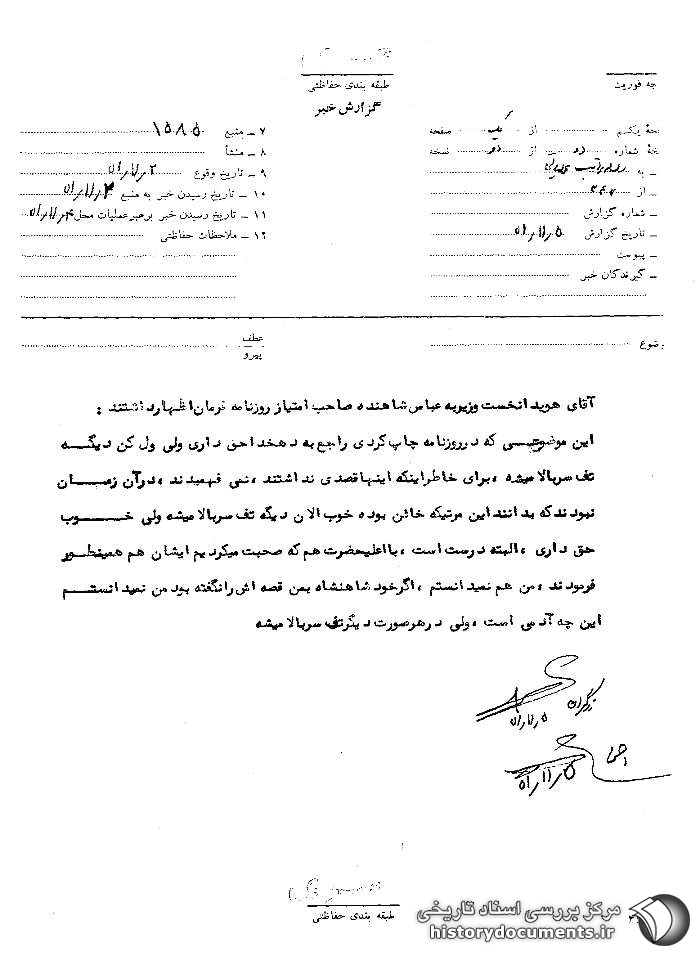 طبقه بندی حفاظتی
گزارش خبر
چه فوریت
خۀ یکم از یک صفحه
خۀ شماره دو از دو نسخه
ـ به
ـ از
ـ شماره گزارش
ـ تاریخ گزارش
ـ پیوست
ـ گیرندگان خبر
۷ ـ منبع ۱۵۸۰۵
۸ ـ منشأ
۹ ـ تاریخ وقوع
۱۰ ـ تاریخ رسیدن خبر به منبع
۱۱ ـ تاریخ رسیدن خبر برهبر عملیات محل
۱۲ ـ ملاحظات حفاظتی
رضوع
عطف
پیرو
آقای هویدا نخست وزیر به عباس شاهنده صاحب امتیاز روزنامه فرمان اظهار داشتند :
این موضوعی که در روزنامه چاپ کردی راجع به دهخدا حق داری ولی ول کن دیگه
تف سربالا میشه ، برای خاطر اینکه اینها قصدی نداشتند ، نمی فهمیدند ، در آن زمان
نبودند که بدانند این مرتیکه خائن بوده خوب الان دیگه تف سربالا میشه ولی خوب
حق داری ، البته درست است ، با اعلیحضرت هم که صحبت میکردیم ایشان هم همینطور
فرمودند ، من هم نمیدانستم ، اگر خود شاهنشاه بمن قصه اش را نگفته بود من نمیدانستم
این چه آدمی است ، ولی در هر صورت دیگر تف سربالا میشه
طبقه بندی حفاظتی
مرکز بررسی اسناد تاریخی
historydocuments.ir